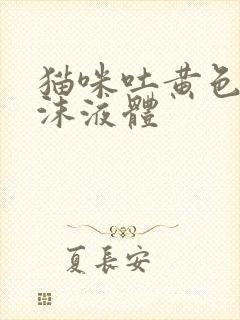 猫咪吐黄色
沫液體
夏長安